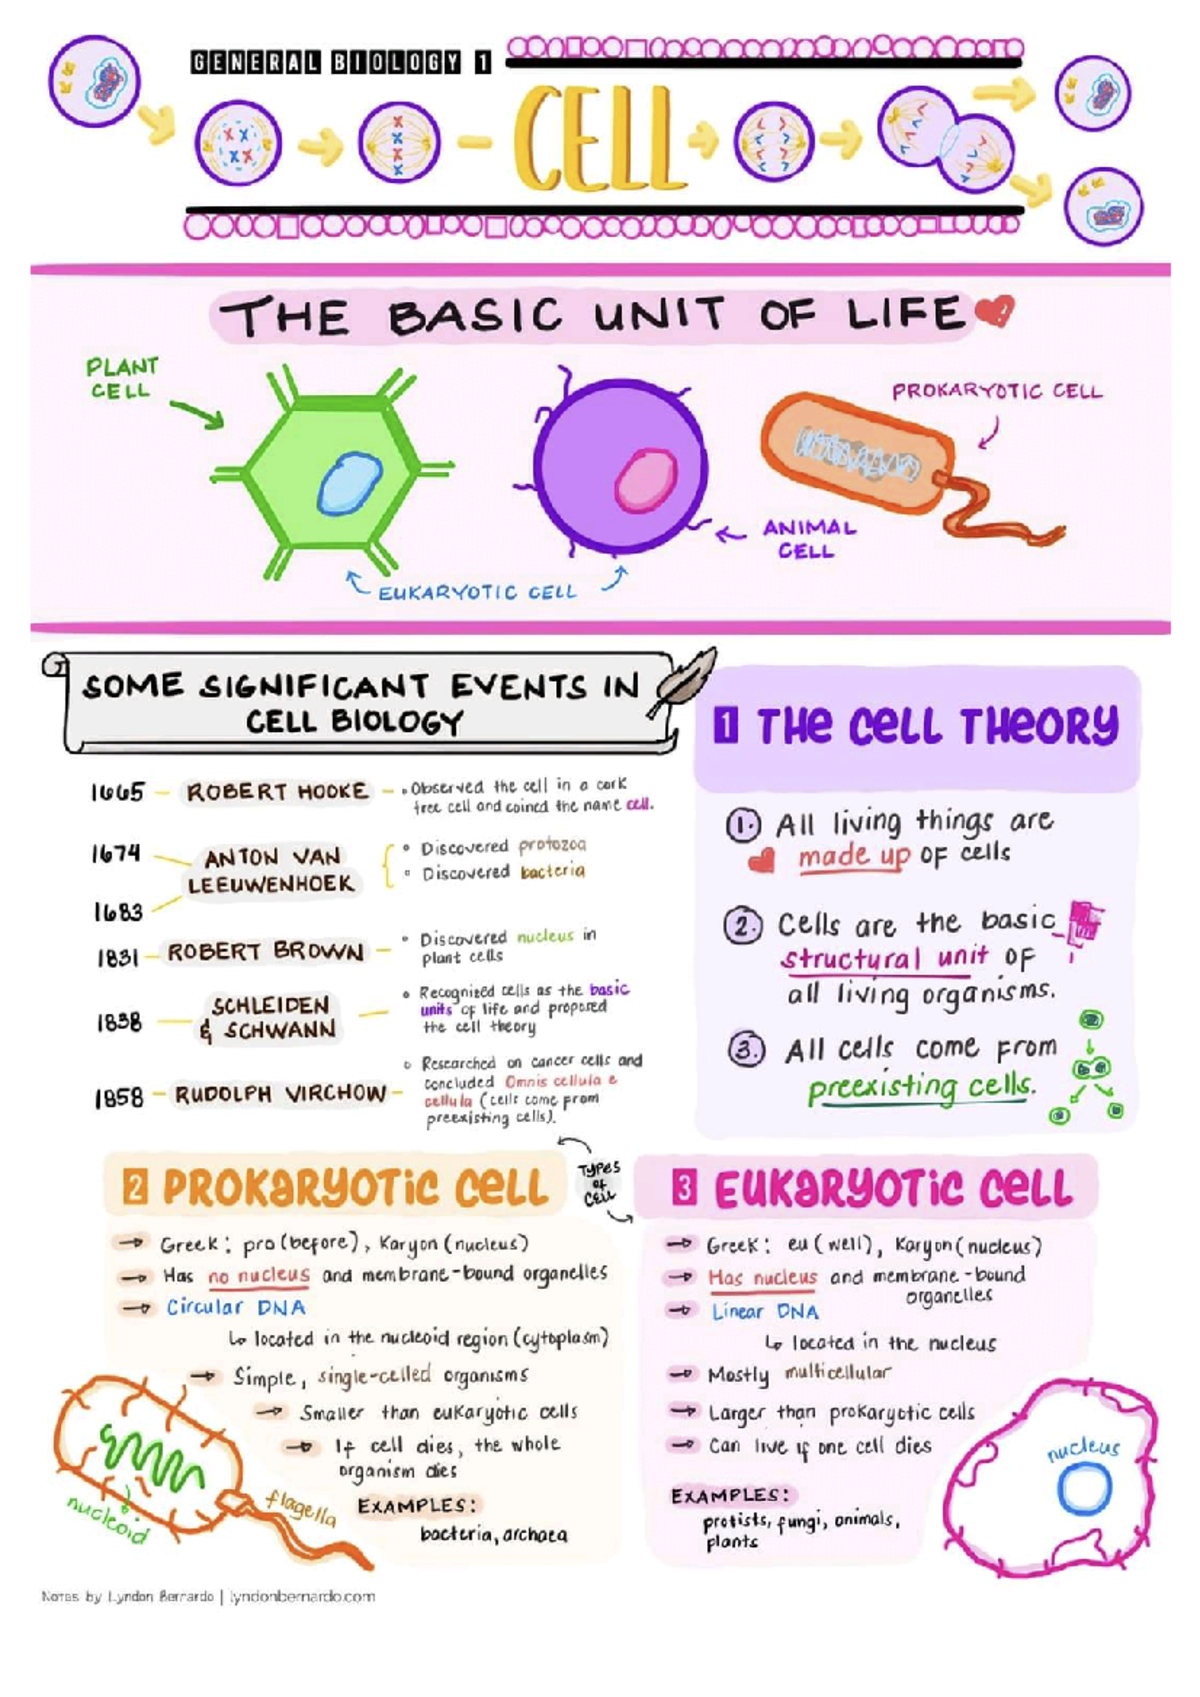 GENERAL BIOLOGY 1
CELL
THE BASIC UNIT OF LIFE
PLANT
CELL
PROKARYOTIC CELL
ANIMAL
CELL
EUKARYOTIC CELL
SOME SIGNIFICANT EVENTS IN
CELL BIOLOGY
1665 – ROBERT HOOKE – • Observed the cell in a cork
tree cell and coined the name cell.
1674
ANTON VAN
LEEUWENHOEK
1683
• Discovered protozoa
• Discovered bacteria
1831 – ROBERT BROWN – • Discovered nucleus in
plant cells
1838 – SCHLEIDEN
& SCHWANN
• Recognized cells as the basic
units of life and proposed
the cell theory
1858 – RUDOLPH VIRCHOW –
• Researched on cancer cells and
concluded Omnis cellula e
cellula (cells come from
preexisting cells).
1 THE CELL THEORY
1. All living things are
made up of cells
2. Cells are the basic
structural unit of
all living organisms.
3. All cells come from
preexisting cells.
TYPES
OF
CELL
2 PROKARYOTIC CELL
→ Greek: pro (before), Karyon (nucleus)
→ Has no nucleus and membrane-bound organelles
→ Circular DNA
↳ located in the nucleoid region (cytoplasm)
→ Simple, single-celled organisms
→ Smaller than eukaryotic cells
→ If cell dies, the whole
organism dies
EXAMPLES:
bacteria, archaea
nucleoid
flagella
3 EUKARYOTIC CELL
→ Greek: eu (well), Karyon (nucleus)
→ Has nucleus and membrane-bound
organelles
→ Linear DNA
↳ located in the nucleus
→ Mostly multicellular
→ Larger than prokaryotic cells
→ Can live if one cell dies
EXAMPLES:
protists, fungi, animals,
plants
nucleus
Notes by Lyndon Bernardo | lyndonbernardo.com